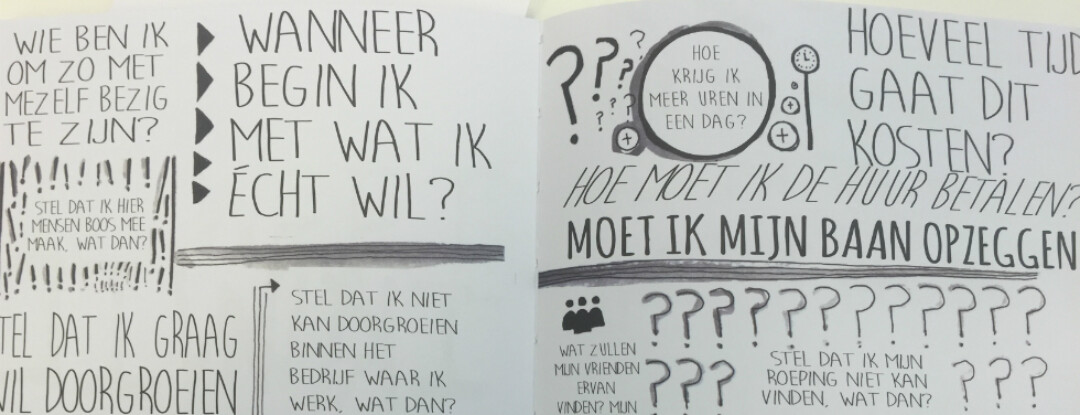 WIE BEN IK
OM ZO MET
MEZELF BEZIG
TE ZIJN?
WANNEER
BEGIN IK
MET WAT IK
ÉCHT WIL?
STEL DAT IK HIER
MENSEN BOOS MEE
MAAK, WAT DAN?
TEL DAT IK GRAAG
WIL DOORGROEIEN
STEL DAT IK NIET
KAN DOORGROEIEN
BINNEN HET
BEDRIJF WAAR IK
WERK, WAT DAN?
? ? ? ? ? ? ?
HOE
KRIJG IK
MEER UREN IN
EEN DAG?
HOEVEEL TIJD
GAAT DIT
KOSTEN?
HOE MOET IK DE HUUR BETALEN?
MOET IK MIJN BAAN OPZEGGEN
? ? ? ? ? ? ? ? ? ? ? ?
WAT ZULLEN
MIJN VRIENDEN
ERVAN
VINDEN? MIJN
? ? ?
STEL DAT IK MIJN
ROEPING NIET KAN
VINDEN, WAT DAN?
? ? ?